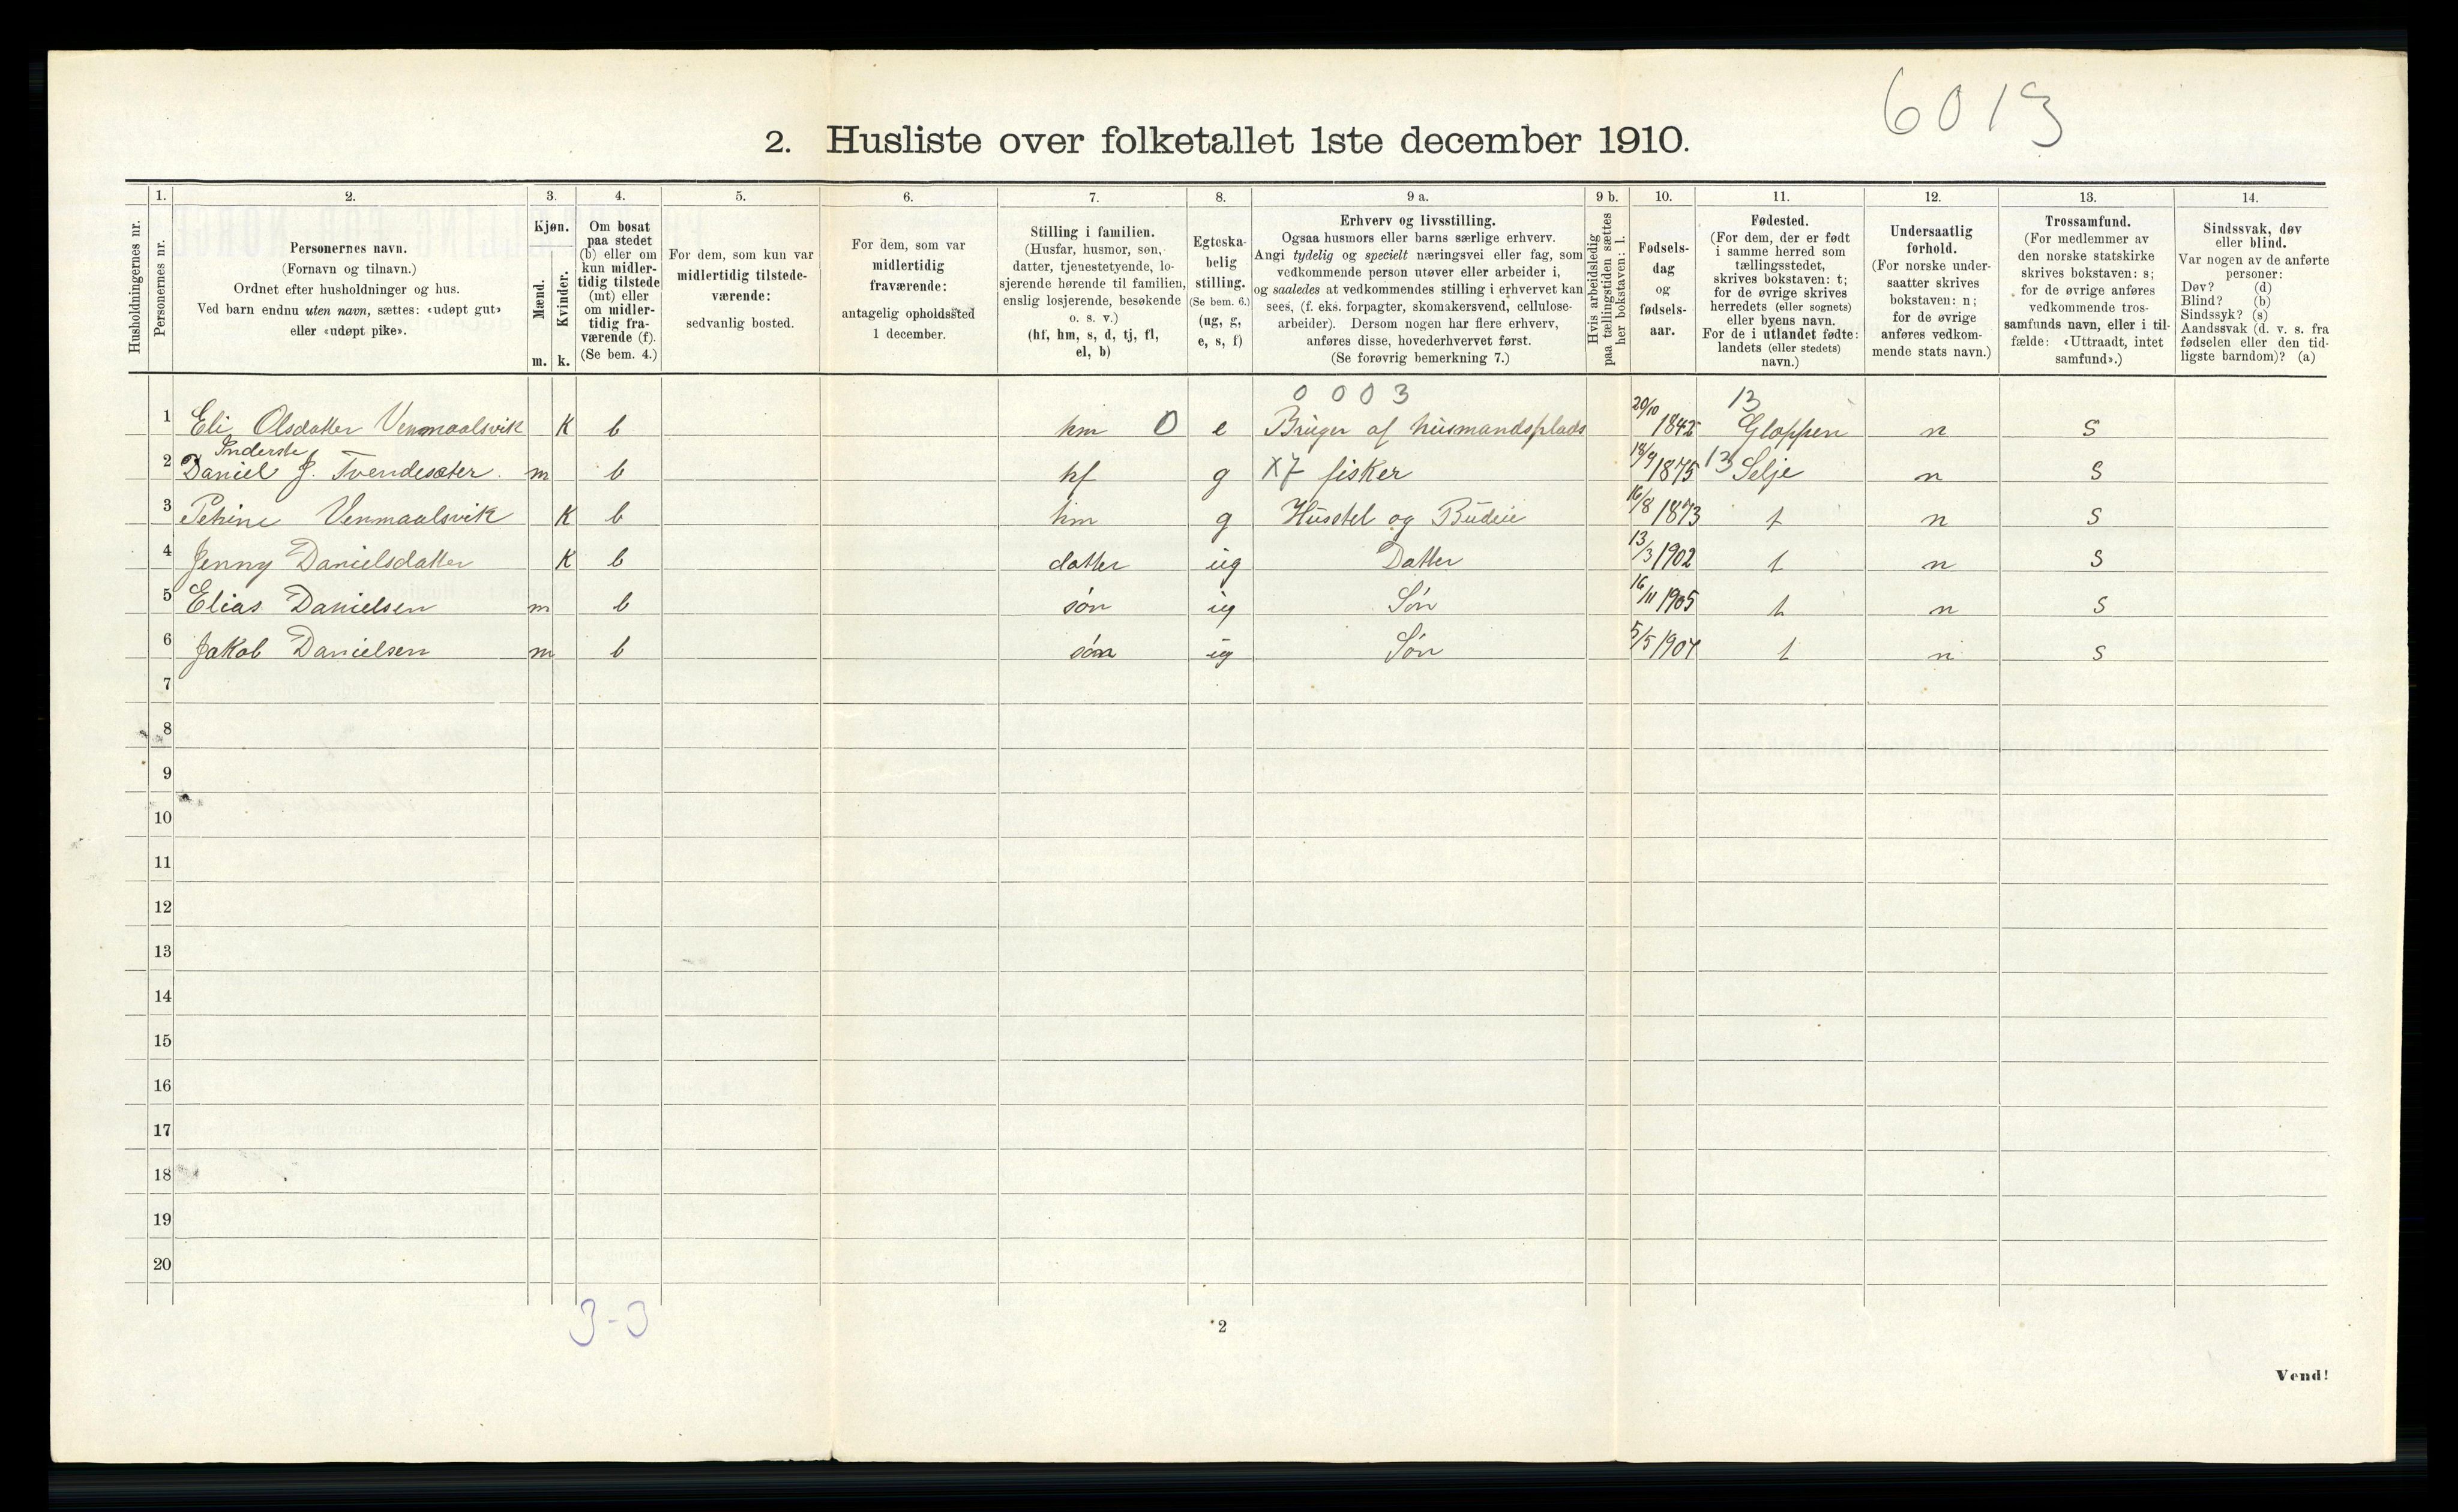 6013
2. Husliste over folketallet 1ste december 1910.
Husholdningernes nr.
1. Personernes nr.
2. Personernes navn.
(Fornavn og tilnavn.)
Ordnet efter husholdninger og hus.
Ved barn endnu uten navn, sættes: «udøpt gut»
eller «udøpt pike».
3. Kjøn.
Mænd. m.
Kvinder. k.
4. Om bosat
paa stedet
(b) eller om
kun midler-
tidig tilstede
(mt) eller
om midler-
tidig fra-
værende (f).
(Se bem. 4.)
5. For dem, som kun var
midlertidig tilstede-
værende:
sedvanlig bosted.
6. For dem, som var
midlertidig
fraværende:
antagelig opholdssted
1 december.
7. Stilling i familien.
(Husfar, husmor, søn,
datter, tjenestetyende, lo-
sjerende hørende til familien,
enslig losjerende, besøkende
o. s. v.)
(hf, hm, s, d, tj, fl,
el, b)
8. Egteska-
belig
stilling.
(Se bem. 6.)
(ug, g,
e, s, f)
9 a. Erhverv og livsstilling.
Ogsaa husmors eller barns særlige erhverv.
Angi tydelig og specielt næringsvei eller fag, som
vedkommende person utøver eller arbeider i,
og saaledes at vedkommendes stilling i erhvervet kan
sees, (f. eks. forpagter, skomakersvend, cellulose-
arbeider). Dersom nogen har flere erhverv,
anføres disse, hovederhvervet først.
(Se forøvrig bemerkning 7.)
9 b. Hvis arbeidsledig
paa tællingstiden sættes
her bokstaven: l.
10. Fødsels-
dag
og
fødsels-
aar.
11. Fødested.
(For dem, der er født
i samme herred som
tællingsstedet,
skrives bokstaven: t;
for de øvrige skrives
herredets (eller sognets)
eller byens navn.
For de i utlandet fødte:
landets (eller stedets)
navn.)
12. Undersaatlig
forhold.
(For norske under-
saatter skrives
bokstaven: n;
for de øvrige
anføres vedkom-
mende stats navn.)
13. Trossamfund.
(For medlemmer av
den norske statskirke
skrives bokstaven: s;
for de øvrige anføres
vedkommende tros-
samfunds navn, eller i til-
fælde: «Uttraadt, intet
samfund».)
14. Sindssvak, døv
eller blind.
Var nogen av de anførte
personer:
Døv? (d)
Blind? (b)
Sindssyk? (s)
Aandssvak (d. v. s. fra
fødselen eller den tid-
ligste barndom)? (a)
0 0 0 3 13
1 Eli Olsdatter Venmaalsvik K b hm 0 e Bruger af husmandsplads 20/10 1842 Gloppen n S
Inderste
2 Daniel J. Tvendesæter. m b hf g X7 fisker 18/9 1875 13 Selje n S
3 Petrine Venmaalsvik K b hm g Husstel og Budeie 16/8 1873 t n S
4 Jenny Danielsdatter K b datter ug Datter 13/3 1902 t n S
5 Elias Danielsen m b søn ug Søn 16/11 1905 t n S
6 Jakob Danielsen m b søn ug Søn 5/5 1907 t n S
7
8
9
10
11
12
13
14
15
16
17
18
19
20
3-3
2
Vend!